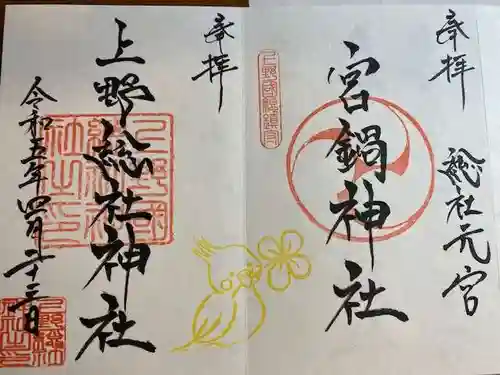 奉拝
総社元宮
宮鍋神社
奉拝
上野総社神社
令和五年四月二十三日